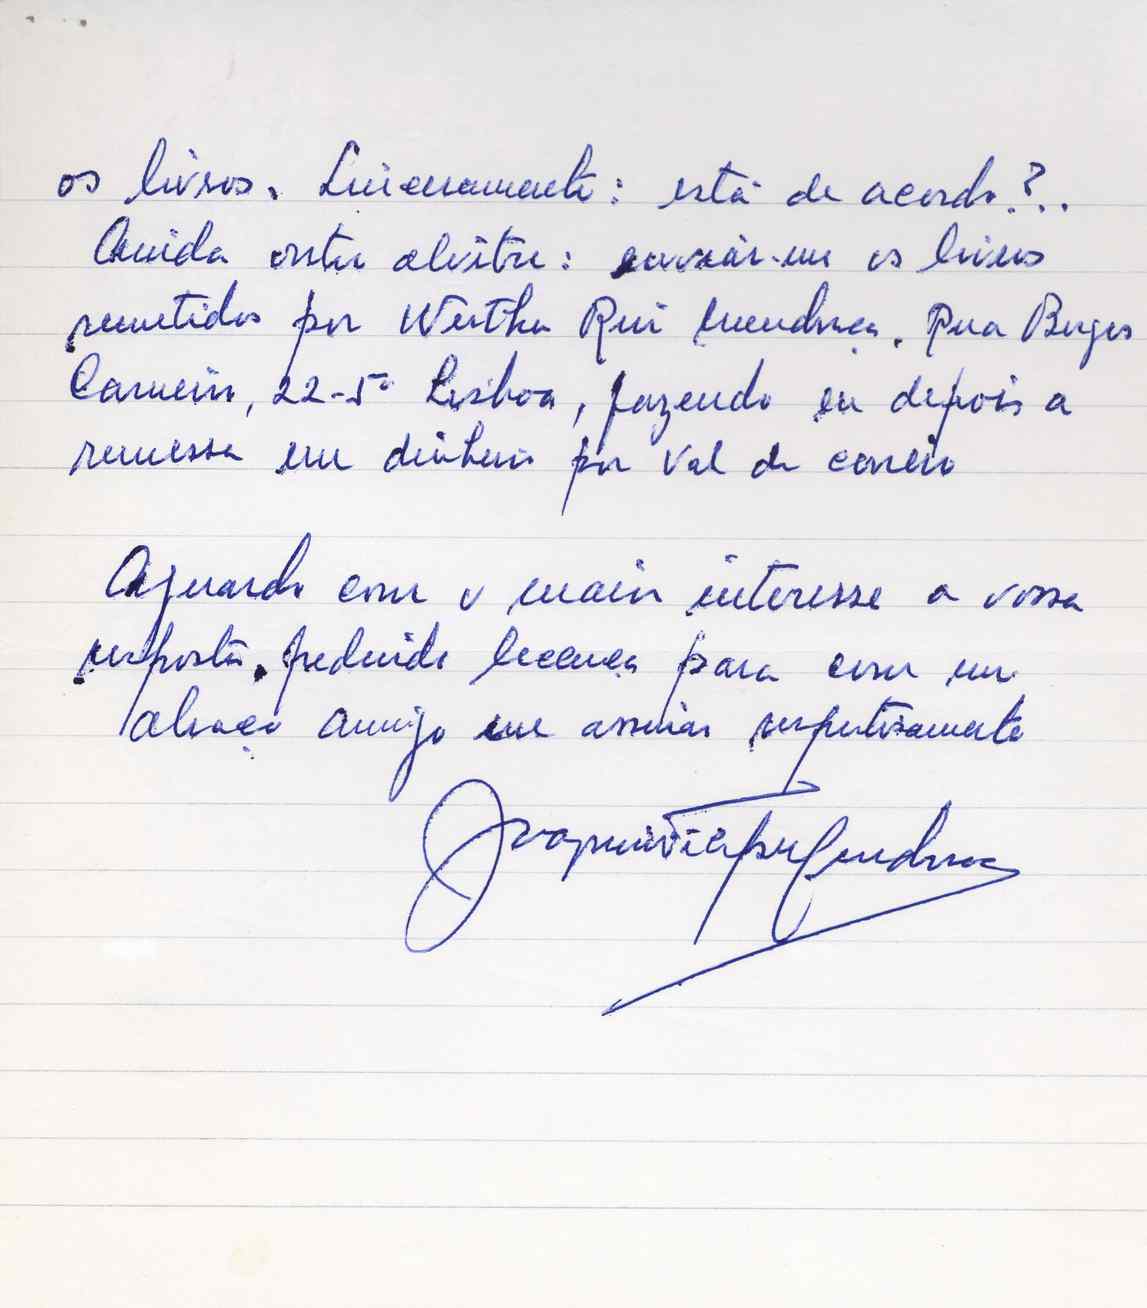 os livros. Sinceramente: está de acordo?..
Ainda outro alvitre: enviar-me os livros
remetidos por Wertha Rui Mendonça. Rua Borges
Carneiro, 22-5º Lisboa, fazendo eu depois a
remessa em dinheiro por val de correio
Aguardo com o maior interesse a vossa
resposta, pedindo licença para com um
abraço amigo me assinar respeitosamente
Joaquim Mendonça